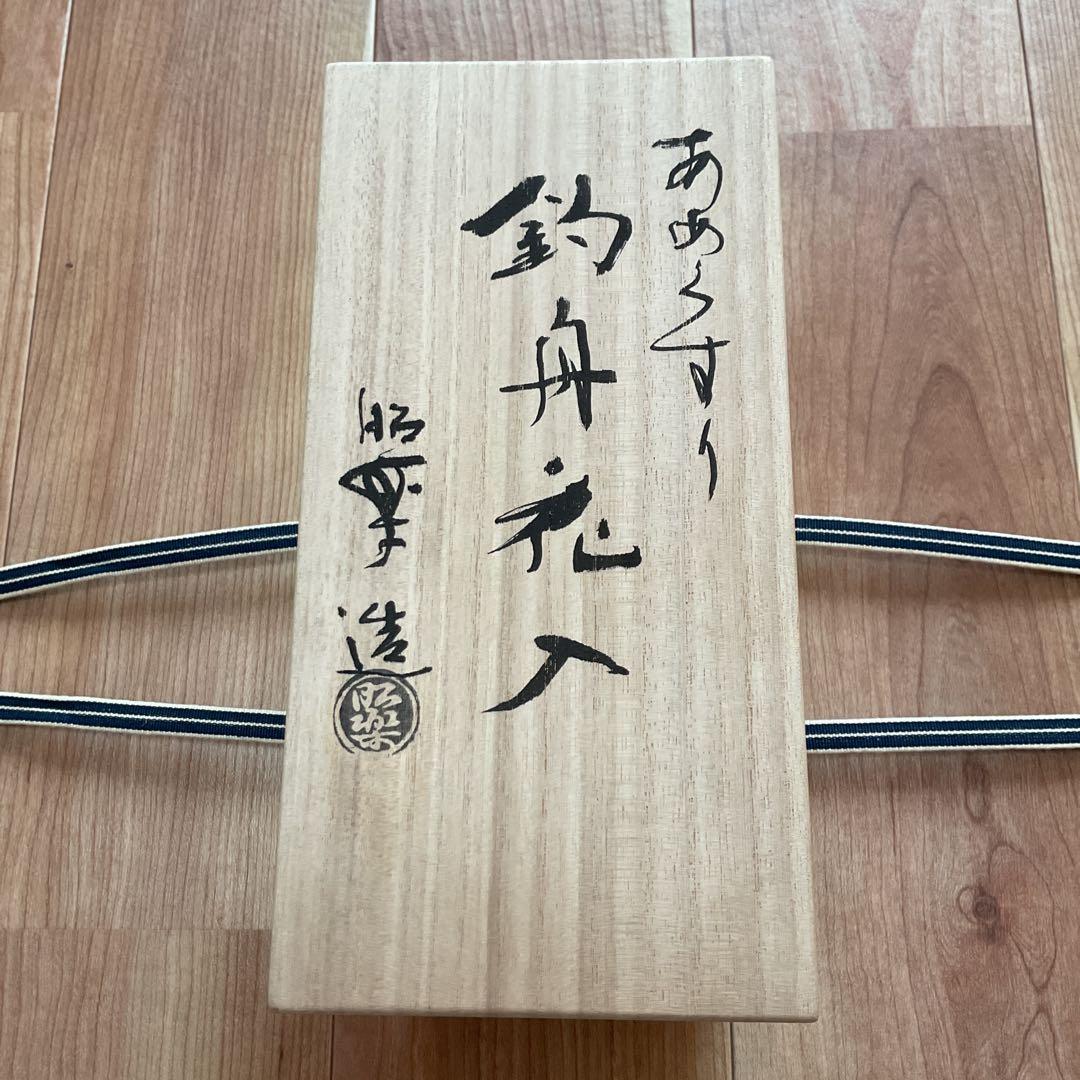 あめくすり
釣舟花入
昭楽造
昭楽